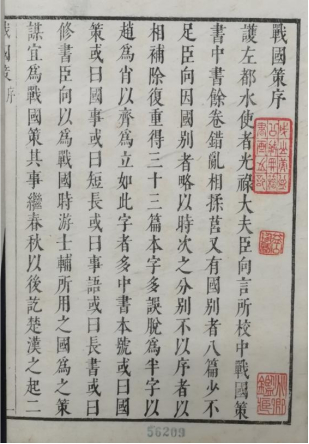 戰國策序
護左都水使者光祿大夫臣向言所校中戰國策
書中書餘卷錯亂相揉莒又有國別者八篇少不
足臣向因國別者略以時次之分別不以序者以
相補除復重得三十三篇本字多誤脫為半字以
趙為肖以齊為立如此字者多中書本號或曰國
策或曰國事或曰短長或曰事語或曰長書或曰
修書臣向以為戰國時游士輔所用之國為之策
謀宜為戰國策其事繼春秋以後訖楚漢之起二
戰國策序
56209